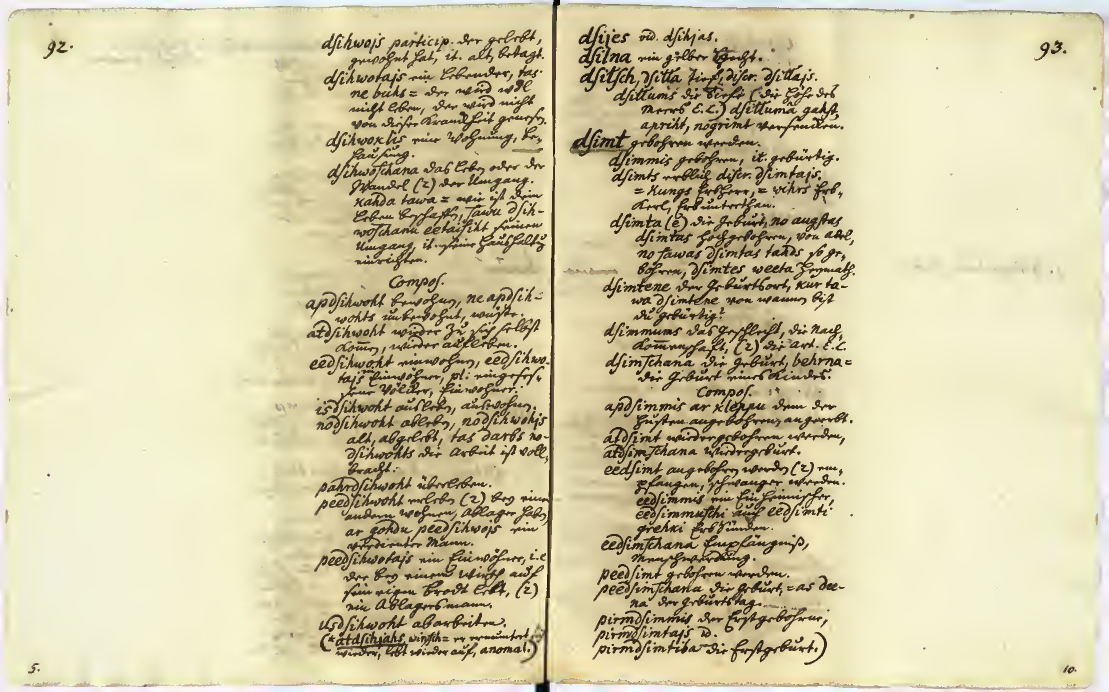 92.
dsihwojs particip. der gelebt,
gewohnt hat, it. alt, betagt.
dsihwotajs ein Lebender, tas
ne buhs = der wird wol
nicht leben, der wird nicht
von dieser Krankheit genesen.
dsihwoklis eine Wohnung, Be-
hausung.
dsihwoschana das Leben oder der
Wandel (2) der Umgang.
kahda tawa = wie ist dein
Leben beschaffen, sawu dsih-
woschanu eetaisiht seinen
Umgang, it. seine Haushaltung
einrichten.
Compos.
apdsihwoht bewohnen, ne apdsih=
wohts unbewohnt, wüste.
atdsihwoht wieder zu sich selbst
kommen, wieder aufleben.
eedsihwoht einwohnen, eedsihwo-
tajs Einwohner, pl: eingeses-
sene Völcker, Einwohner.
isdsihwoht ausleben, auswohnen,
nodsihwoht ableben, nodsihwohjs
alt, abgelebt, tas darbs no-
dsihwohts die Arbeit ist voll-
bracht.
pahrdsihwoht überleben.
peedsihwoht erleben (2) bey einem
andern wohnen, Ablager haben
ar gohdu peedsihwojs ein
verdienter Mann.
peedsihwotajs ein Einwohner, i.e
der bey einem Wirth auf
sein eigen Brodt lebt, (2)
ein Ablagersmann.
usdsihwoht abarbeiten.
(*atdsihjahs, winsch = er ermuntert
wieder, lebt wieder auf, anomal.)
5.
93.
dsijes vid. dsihjas.
dsilna ein gelber Specht.
dsilsch, dsilla tief, discr. dsillajs.
dsillums die Tiefe (die Höhe des
Meers E.L.) dsillumâ gahst,
apriht, nogrimt versencken.
dsimt gebohren werden.
dsimmis gebohren, it. gebürtig.
dsimts erblich discr. dsimtajs.
= kungs Erbherr, = wihrs Erb-
Kerl, Erbunterthan.
dsimta (e) die Geburt, no augstas
dsimtas hochgebohren, von Adel,
no sawas dsimtas tahds so ge-
bohren, dsimtes weeta Heymath.
dsimtene der Geburtsort, kur ta-
wa dsimtene von wannen bist
du gebürtig?
dsimmums das Geschlecht, die Nach-
kommenschaft, (2) die Art. E.L.
dsimschana die Geburt, behrna =
die Geburt eines Kindes.
Compos.
apdsimmis ar kleppu dem der
Husten angebohren, angeerbt.
atdsimt wiedergebohren werden,
atdsimschana Wiedergeburt.
eedsimt angebohren werden (2) em-
pfangen, schwanger werden.
eedsimmis ein Einheimischer,
eedsimmuschi auch eedsimti
grehki Erbsünden.
eedsimschana Empfängniß,
Menschwerdung.
peedsimt gebohren werden.
peedsimschana die Geburt, = as dee-
na der Geburtstag.
pirmdsimmis der Erstgebohrene,
pirmdsimtajs id.
pirmdsimtiba die Erstgeburt.)
10.